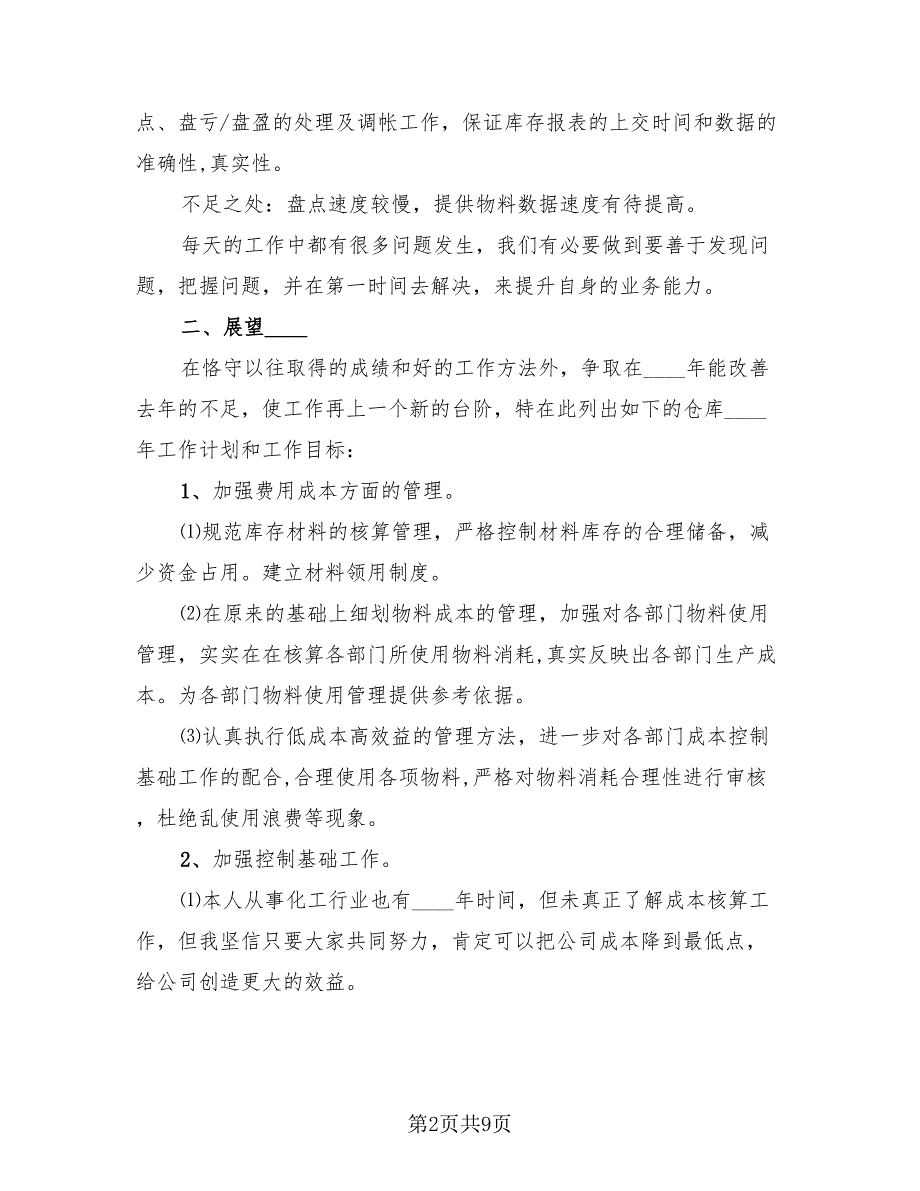 点、盘亏/盘盈的处理及调帐工作，保证库存报表的上交时间和数据的
准确性,真实性。
不足之处：盘点速度较慢，提供物料数据速度有待提高。
每天的工作中都有很多问题发生，我们有必要做到要善于发现问
题，把握问题，并在第一时间去解决，来提升自身的业务能力。
二、展望____
在恪守以往取得的成绩和好的工作方法外，争取在____年能改善
去年的不足，使工作再上一个新的台阶，特在此列出如下的仓库____
年工作计划和工作目标：
1、加强费用成本方面的管理。
⑴规范库存材料的核算管理，严格控制材料库存的合理储备，减
少资金占用。建立材料领用制度。
⑵在原来的基础上细划物料成本的管理，加强对各部门物料使用
管理，实实在在核算各部门所使用物料消耗,真实反映出各部门生产成
本。为各部门物料使用管理提供参考依据。
⑶认真执行低成本高效益的管理方法，进一步对各部门成本控制
基础工作的配合,合理使用各项物料,严格对物料消耗合理性进行审核
，杜绝乱使用浪费等现象。
2、加强控制基础工作。
⑴本人从事化工行业也有____年时间，但未真正了解成本核算工
作，但我坚信只要大家共同努力，肯定可以把公司成本降到最低点，
给公司创造更大的效益。
第2页共9页